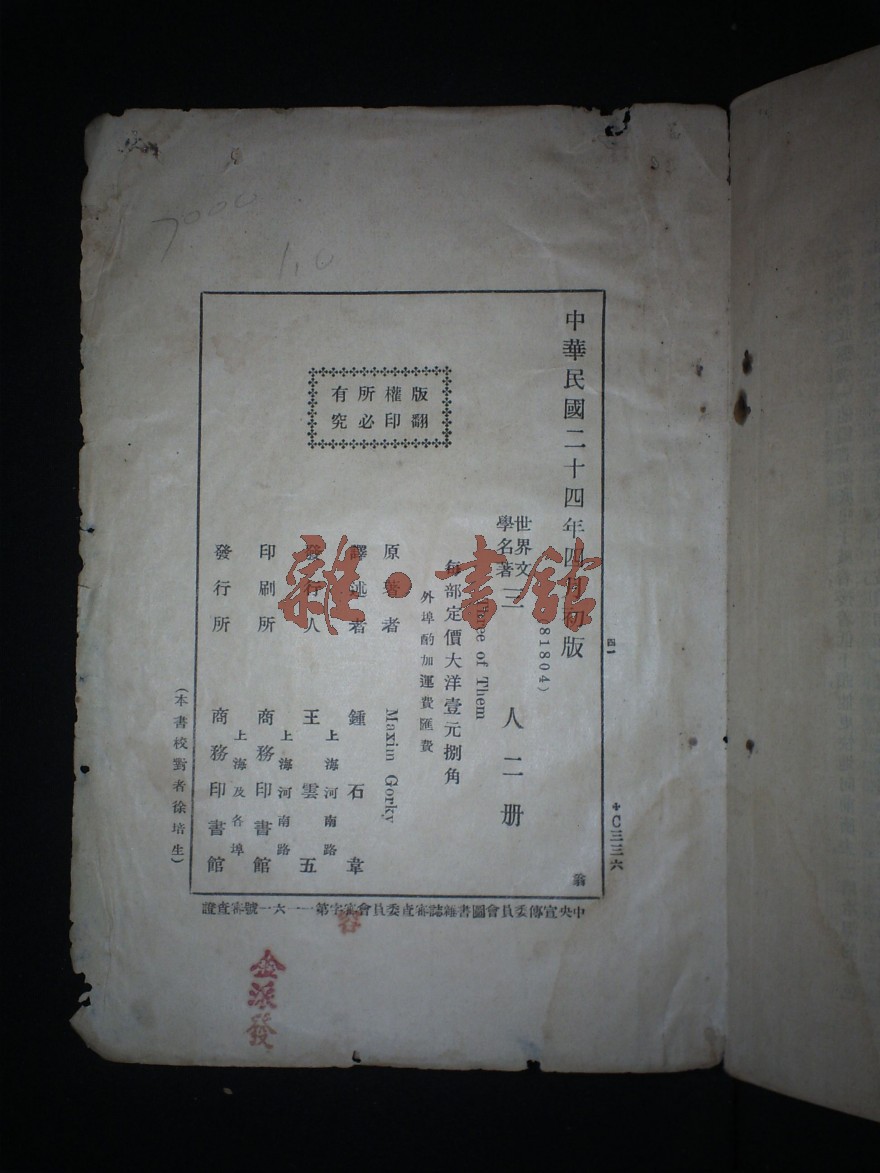 7000
1,0
中華民國二十四年四月初版
四一
+C三三六
81804)
世界文
學名著
三人二册
Three of Them
每部定價大洋壹元捌角
外埠酌加運費匯費
原著者 Maxim Gorky
譯述者 鍾石韋
發行人 王雲五
上海河南路
印刷所 商務印書館
上海河南路
發行所 商務印書館
上海及各埠
版權所有
翻印必究
(本書校對者徐培生)
翁
中央宣傳委員會圖書雜誌審查委員會審字第一一六一號審查證
雜·書館